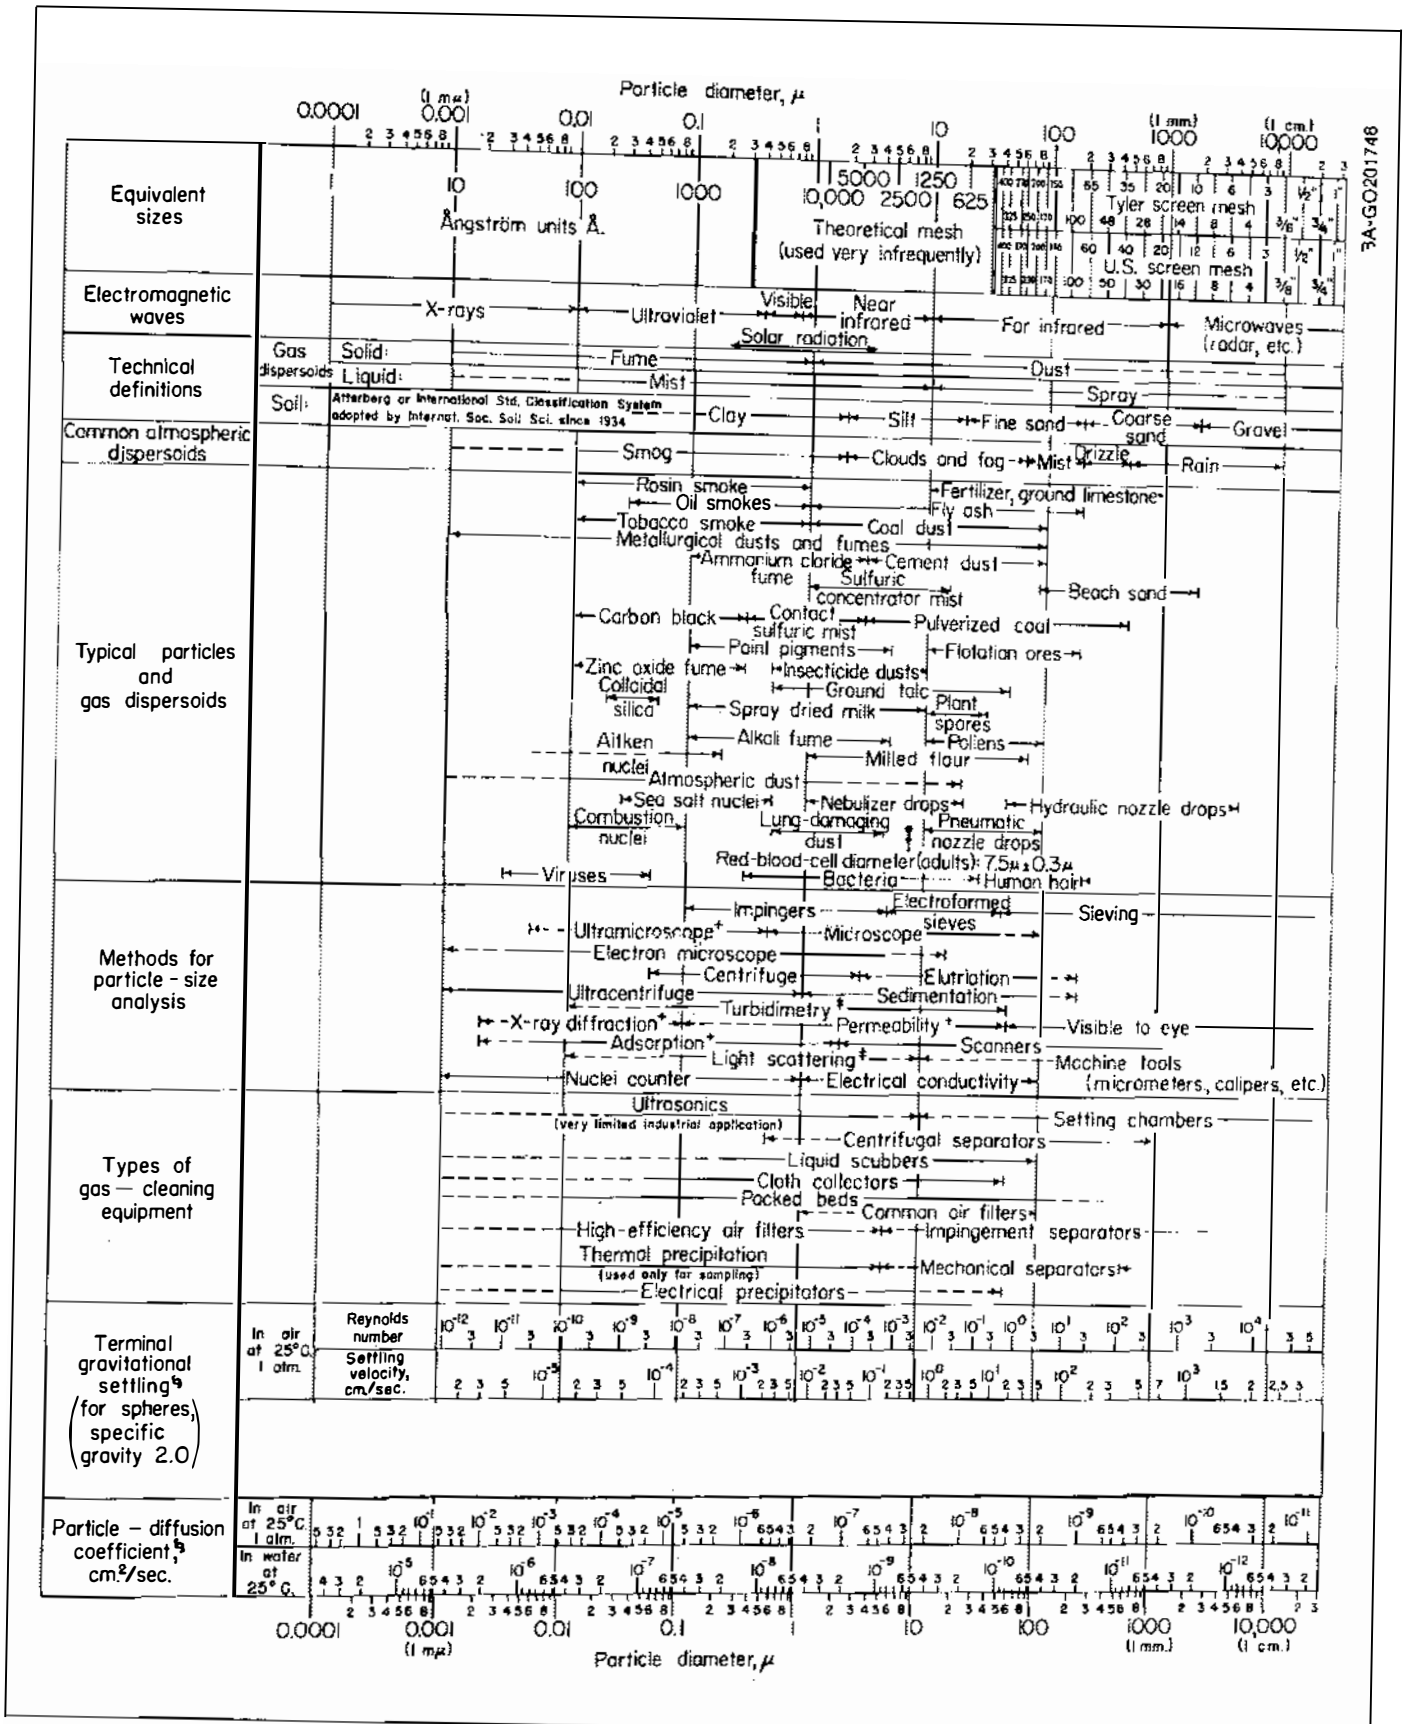 Particle diameter, μ
0.0001 (1 mμ) 0.001 0.01 0.1 1 10 100 (1 mm) 1000 (1 cm.) 10,000
3A-GO201748
Equivalent sizes
10 100 1000
Ångström units Å.
5000 1250
10,000 2500 625
Theoretical mesh
(used very infrequently)
65 35 20 10 6 3 1/2" 1"
Tyler screen mesh
100 48 28 14 8 4 3/8" 3/4"
60 40 20 12 6 3 1/2" 1"
U.S. screen mesh
100 50 30 16 8 4 3/8" 3/4"
Electromagnetic waves
X-rays Ultraviolet Visible Near infrared Far infrared Microwaves (radar, etc.)
Solar radiation
Technical definitions
Gas dispersoids
Solid: Fume Dust
Liquid: Mist Spray
Soil: Atterberg or International Std. Classification System
adopted by Internat. Soc. Soil Sci. since 1934
Clay Silt Fine sand Coarse sand Gravel
Common atmospheric dispersoids
Smog Clouds and fog Mist Drizzle Rain
Typical particles and gas dispersoids
Rosin smoke Fertilizer, ground limestone
Oil smokes Fly ash
Tobacco smoke Coal dust
Metallurgical dusts and fumes
Ammonium cloride fume Cement dust
Sulfuric concentrator mist Beach sand
Carbon black Contact sulfuric mist Pulverized coal
Paint pigments Flotation ores
Zinc oxide fume Insecticide dusts
Colloidal silica Ground talc
Spray dried milk Plant spores
Aitken nuclei Alkali fume Pollens
Milled flour
Atmospheric dust
Sea salt nuclei Nebulizer drops Hydraulic nozzle drops
Combustion nuclei Lung-damaging dust Pneumatic nozzle drops
Red-blood-cell diameter (adults): 7.5μ±0.3μ
Viruses Bacteria Human hair
Methods for particle-size analysis
Impingers Electroformed sieves Sieving
Ultramicroscope+ Microscope
Electron microscope
Centrifuge Elutriation
Ultracentrifuge Sedimentation
Turbidimetry‡
X-ray diffraction+ Permeability+ Visible to eye
Adsorption+ Scanners
Light scattering‡ Machine tools
Nuclei counter Electrical conductivity (micrometers., calipers, etc.)
Types of gas-cleaning equipment
Ultrasonics
(very limited industrial application)
Setting chambers
Centrifugal separators
Liquid scubbers
Cloth collectors
Packed beds
Common air filters
High-efficiency air filters Impingement separators
Thermal precipitation
(used only for sampling)
Mechanical separators
Electrical precipitators
Terminal gravitational settling
(for spheres, specific gravity 2.0)
In air at 25°C. 1 atm.
Reynolds number
10-12 10-11 10-10 10-9 10-8 10-7 10-6 10-5 10-4 10-3 10-2 10-1 100 101 102 103 104
Settling velocity, cm./sec.
10-5 10-4 10-3 10-2 10-1 100 101 102 103
Particle-diffusion coefficient, cm.2/sec.
In air at 25°C. 1 atm.
1 10-1 10-2 10-3 10-4 10-5 10-6 10-7 10-8 10-9 10-10 10-11
In water at 25°C.
10-5 10-6 10-7 10-8 10-9 10-10 10-11 10-12
0.0001 0.001 (1 mμ) 0.01 0.1 1 10 100 1000 (1 mm.) 10,000 (1 cm.)
Particle diameter, μ